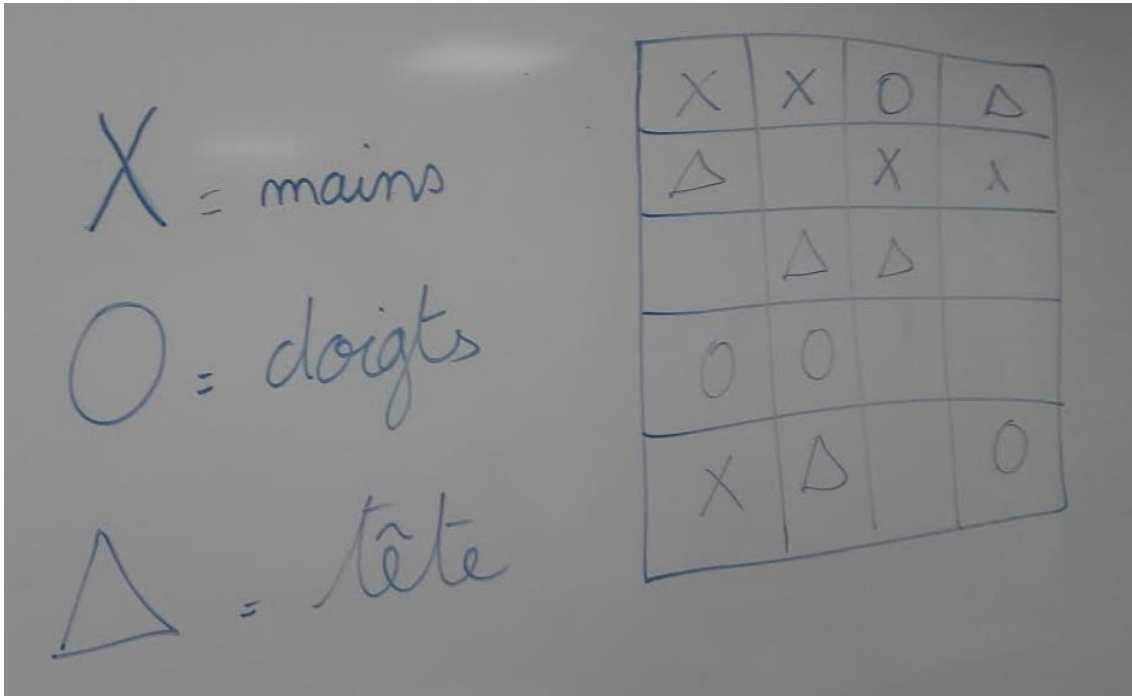 X = mains
O = doigts
Δ = tête
X X O Δ
Δ X X
Δ Δ
O O
X Δ O